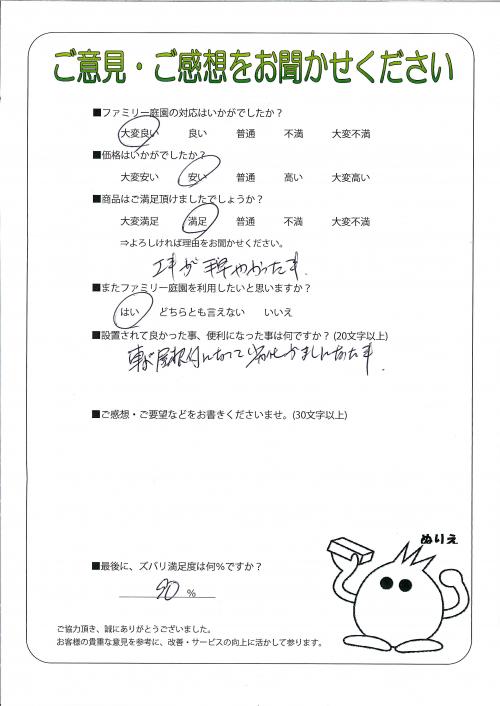 ご意見・ご感想をお聞かせください
■ファミリー庭園の対応はいかがでしたか？
大変良い 良い 普通 不満 大変不満
■価格はいかがでしたか？
大変安い 安い 普通 高い 大変高い
■商品はご満足頂けましたでしょうか？
大変満足 満足 普通 不満 大変不満
⇒よろしければ理由をお聞かせください。
工事が手早やかったです.
■またファミリー庭園を利用したいと思いますか？
はい どちらとも言えない いいえ
■設置されて良かった事、便利になった事は何ですか？(20文字以上)
車が屋根付になって
■ご感想・ご要望などをお書きくださいませ。(30文字以上)
ぬりえ
■最後に、ズバリ満足度は何％ですか？
90 ％
ご協力頂き、誠にありがとうございました。
お客様の貴重な意見を参考に、改善・サービスの向上に活かして参ります。